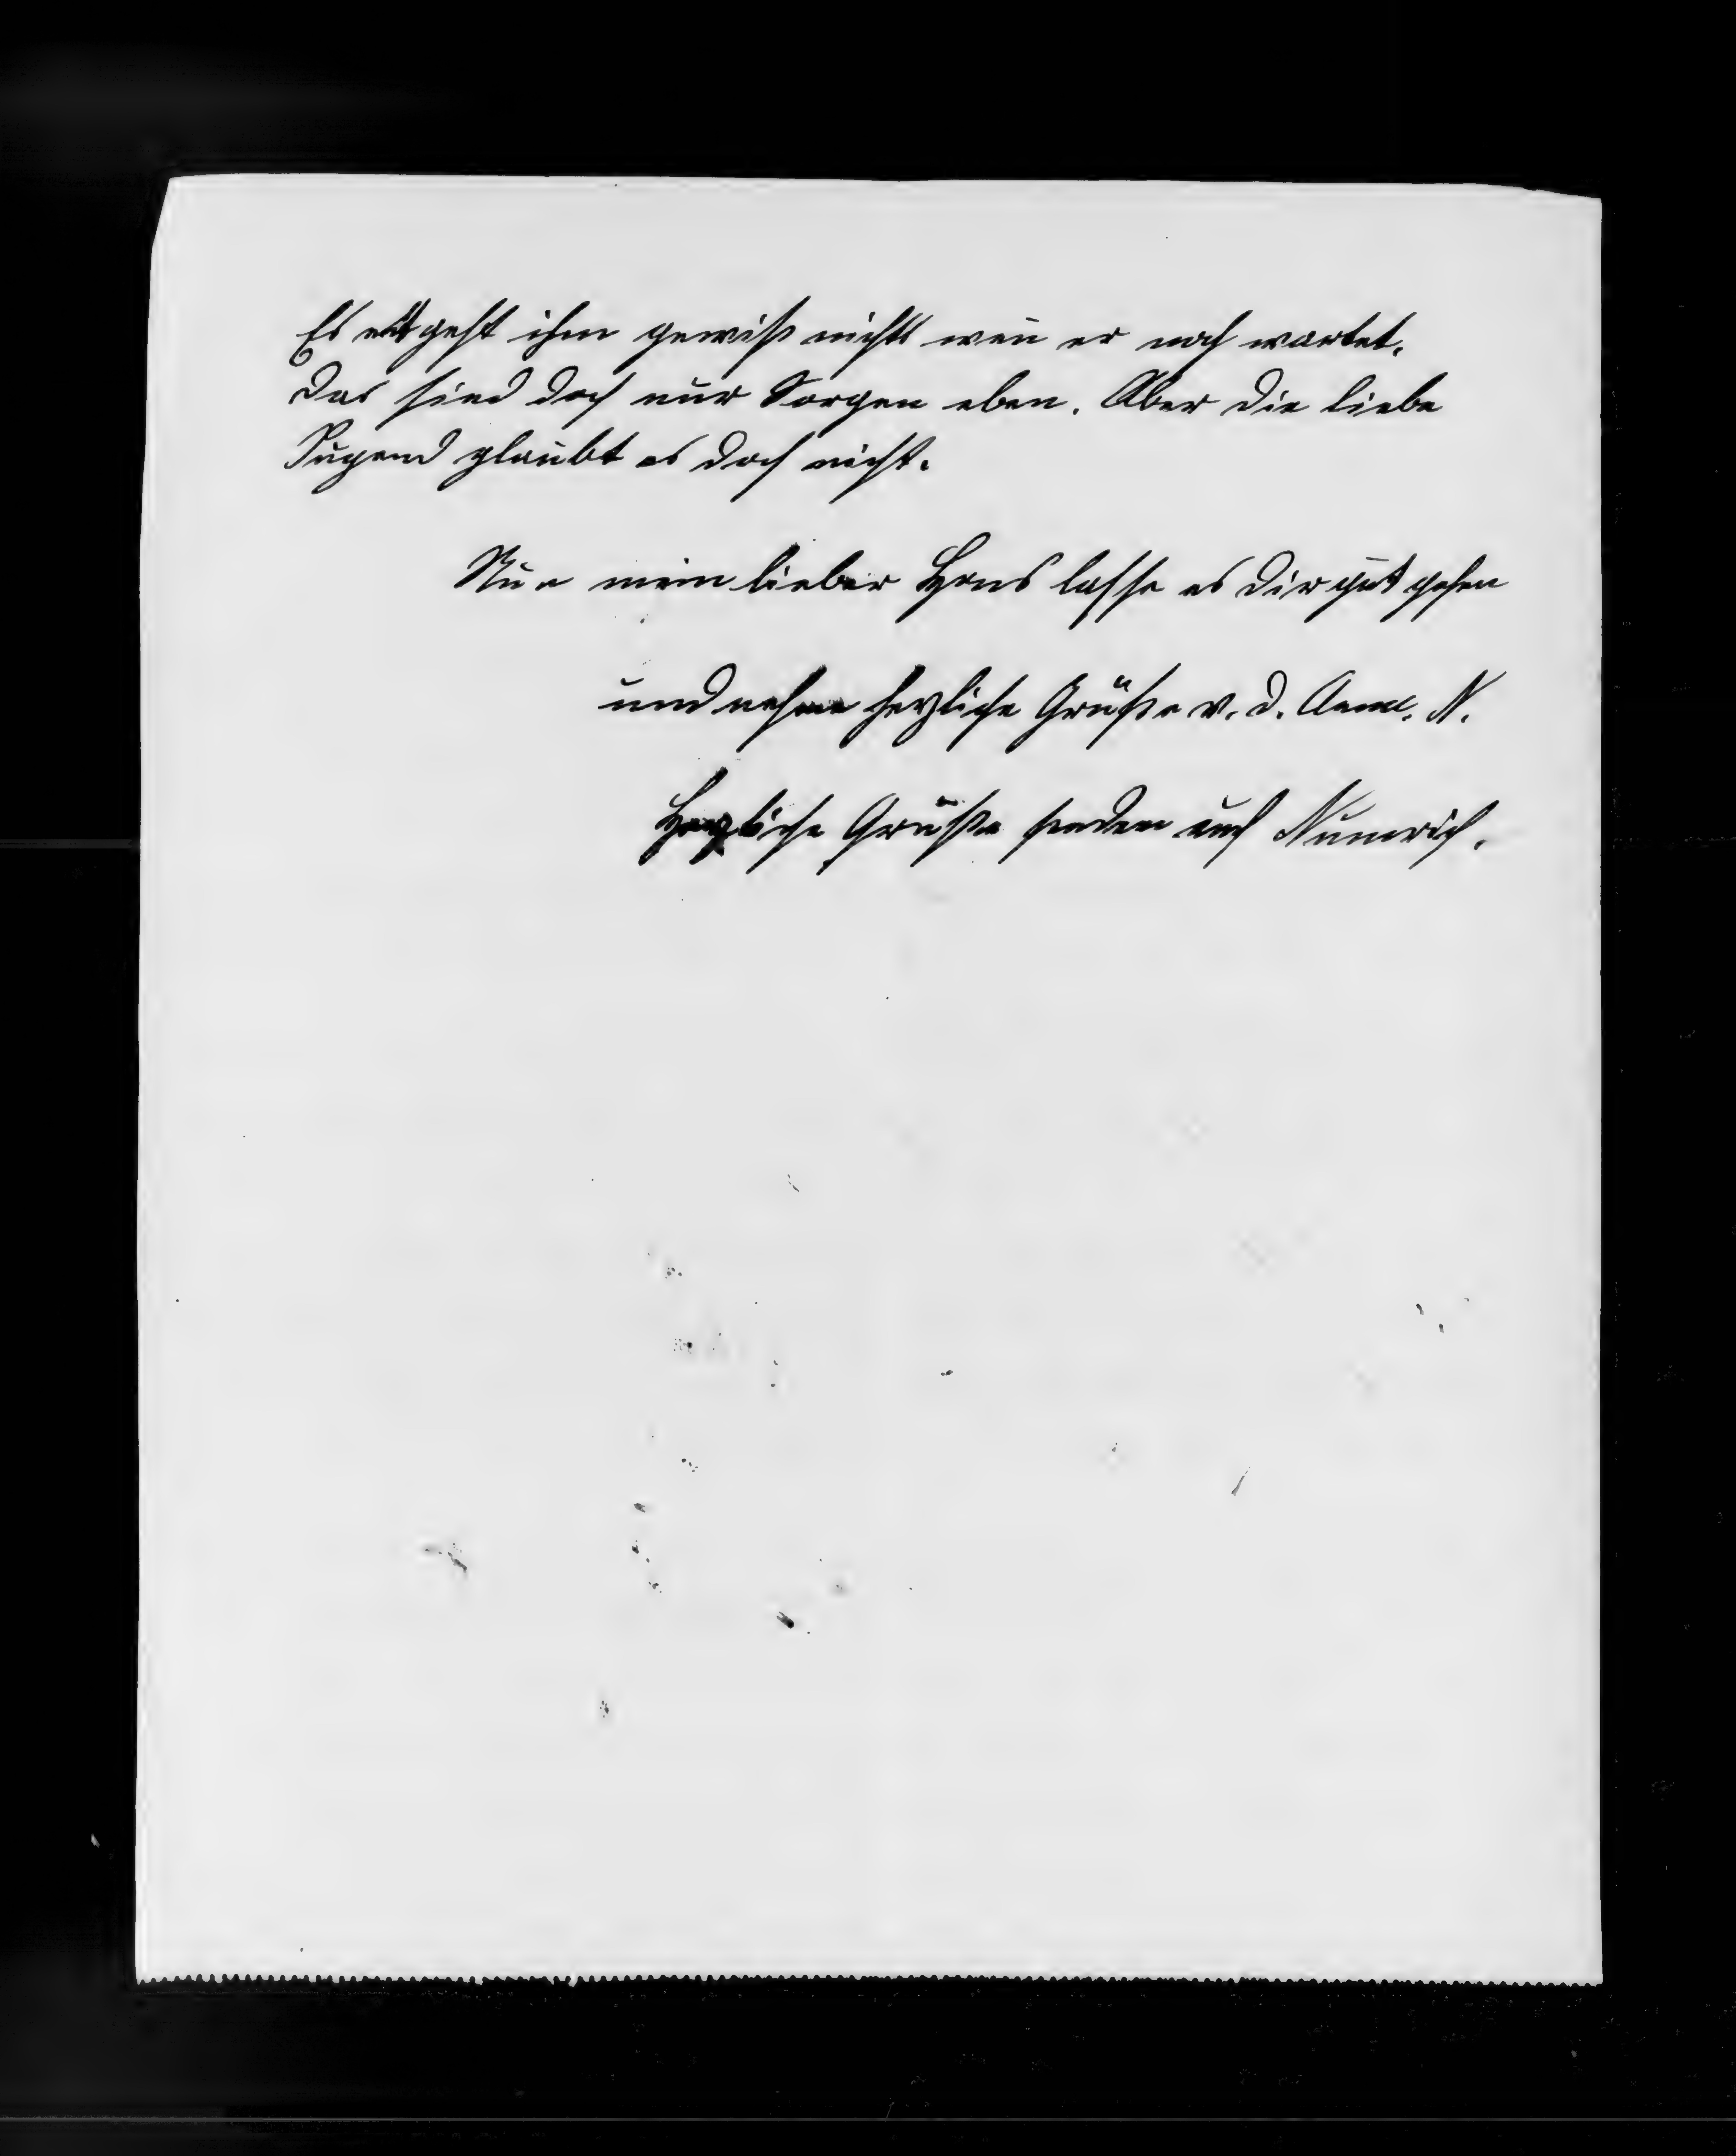 Es entgeht ihm gewiß nichts wen̄ er noch wartet.
das sind doch nur Sorgen eben. Aber die liebe
Jugend glaubt es doch nicht.
Nun mein lieber Hans lasse es dir gut gehen
und nehme herzliche Grüße v. d. N.
Herzliche Grüße senden auch